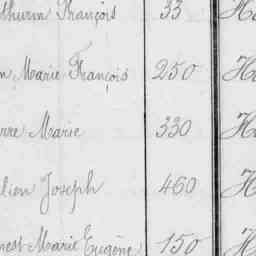 thurin François 33
n Marie François 250
rre Marie 330
lien Joseph 460
nest Marie Eugène 150